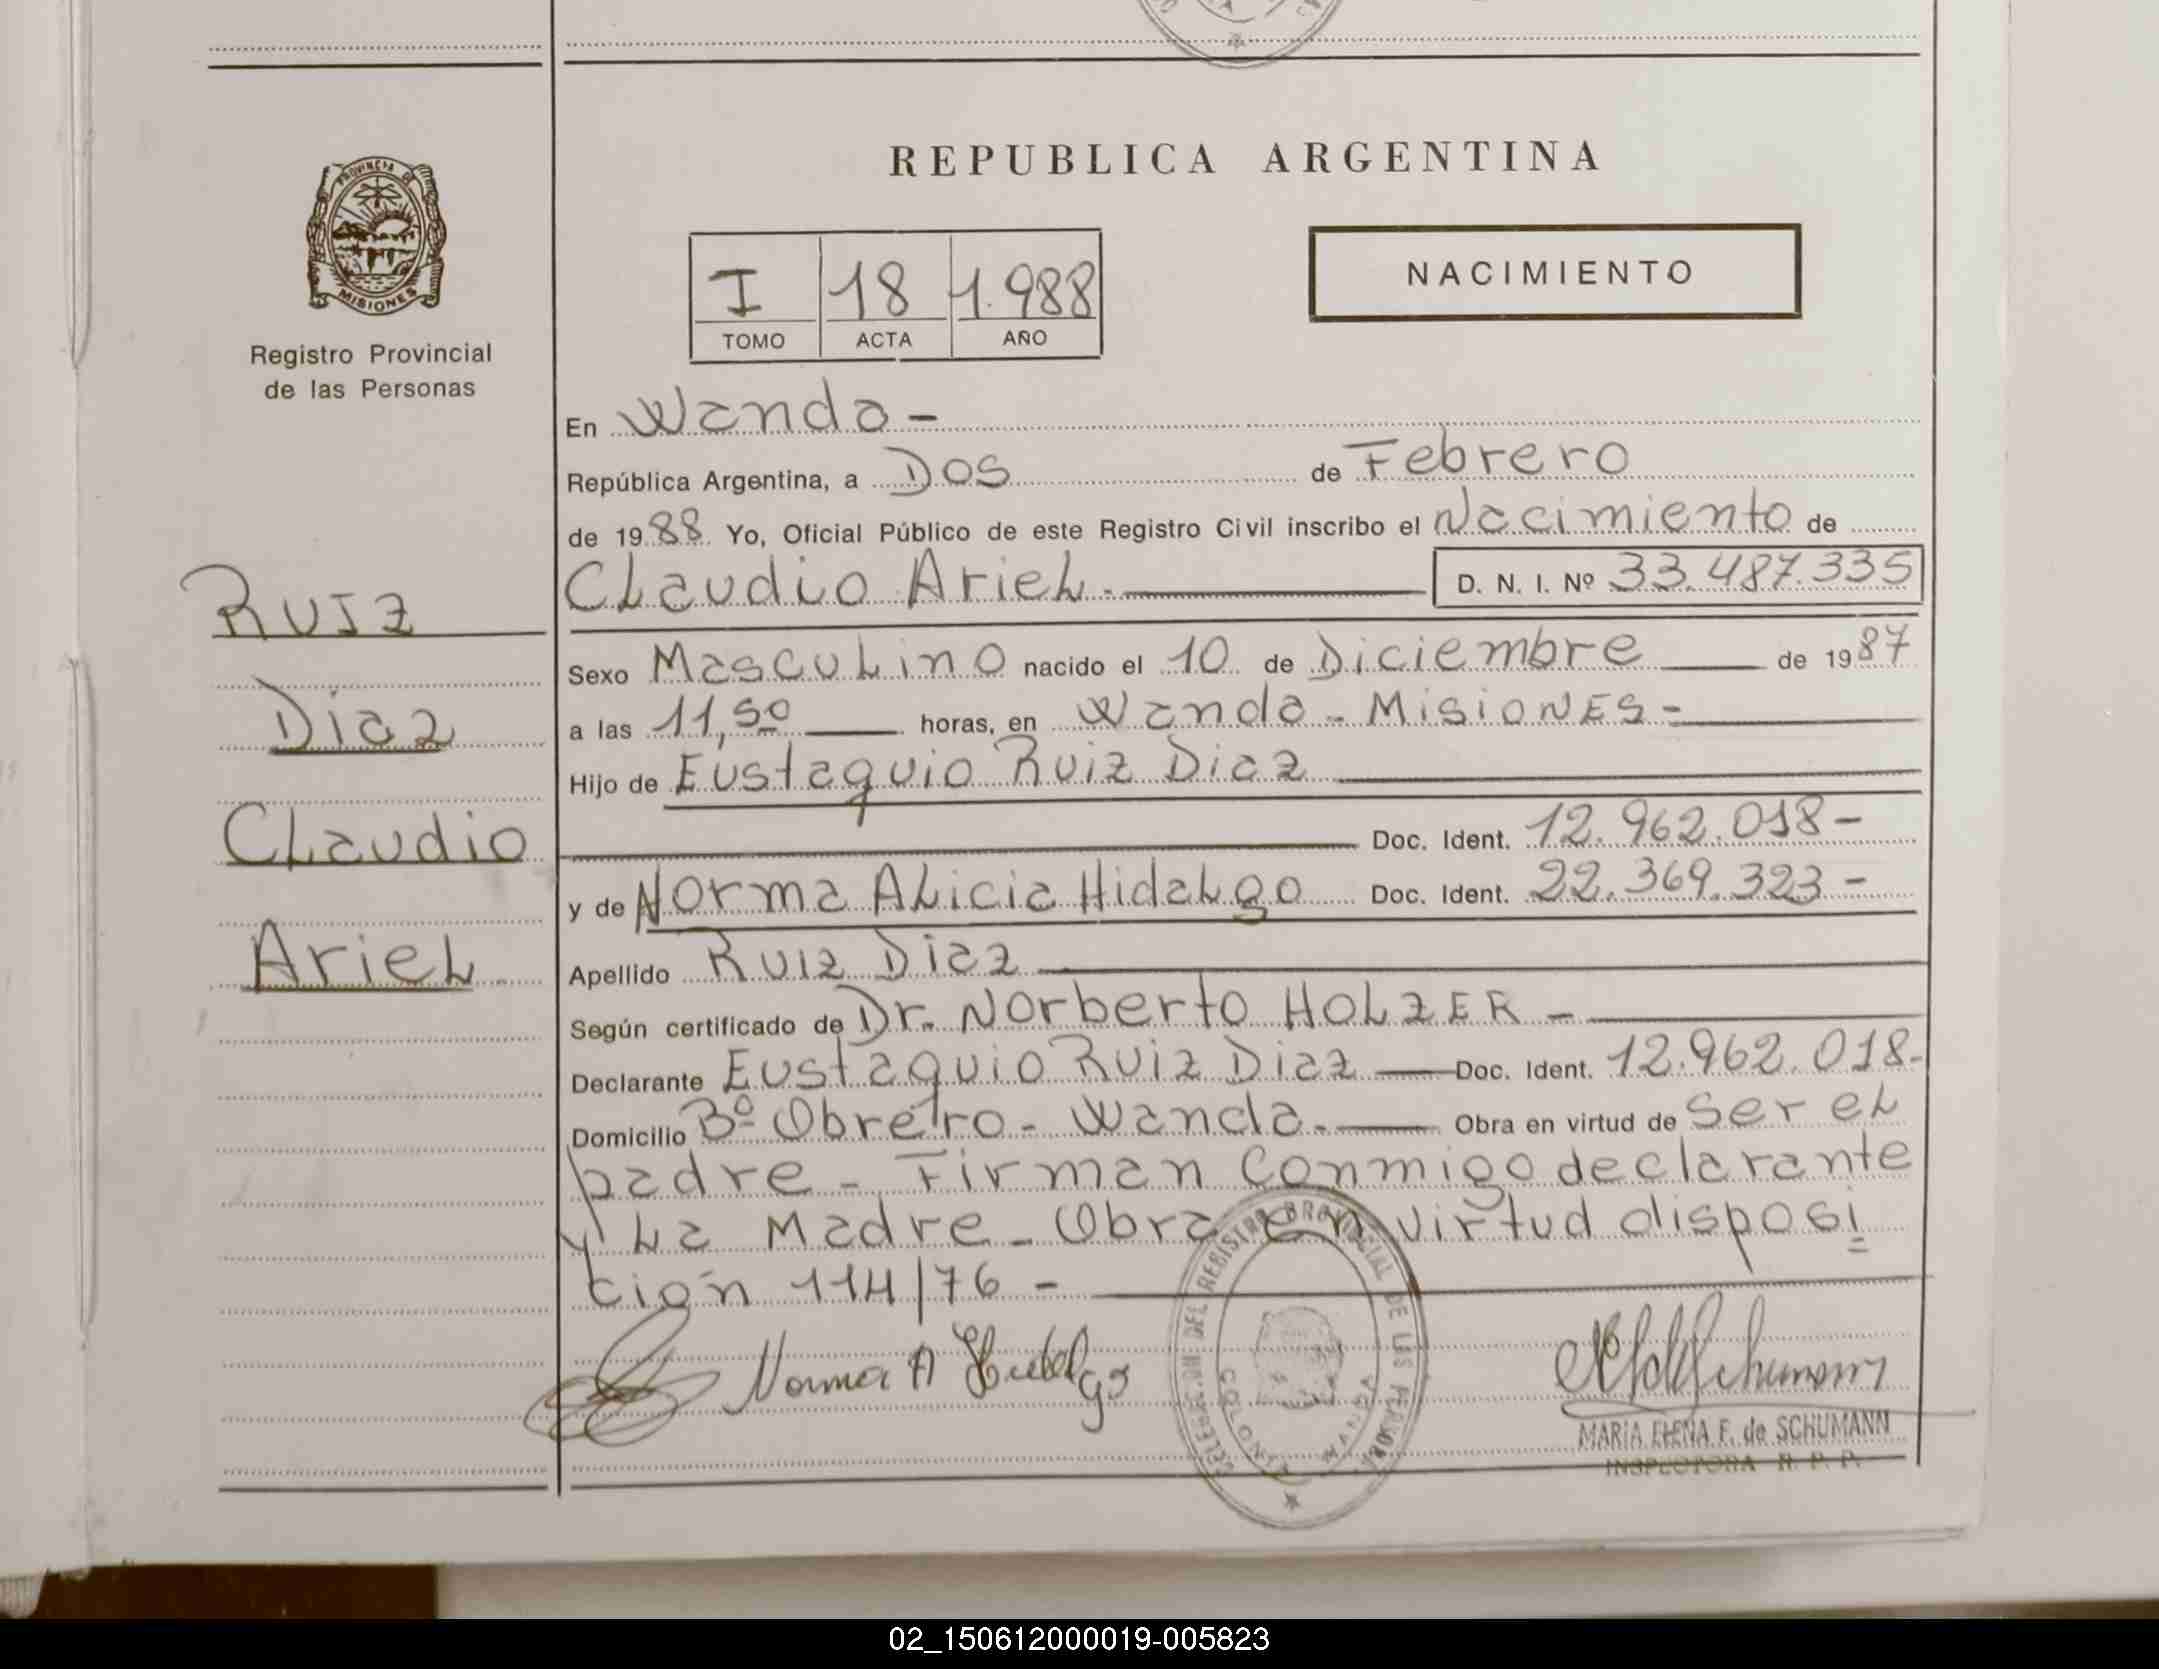 REPUBLICA ARGENTINA
PROVINCIA DE
MISIONES
Registro Provincial
de las Personas
I 18 1.988
TOMO ACTA AÑO
NACIMIENTO
En Wanda -
República Argentina, a Dos de Febrero
de 1988 Yo, Oficial Público de este Registro Civil inscribo el Nacimiento de
Claudio Ariel. D. N. I. Nº 33.487.335
Sexo Masculino nacido el 10 de Diciembre de 1987
a las 11,50 horas, en Wanda - Misiones -
Hijo de Eustaquio Ruiz Diaz
Doc. Ident. 12.962.018-
y de Norma Alicia Hidalgo Doc. Ident. 22.369.323-
Apellido Ruiz Diaz
Según certificado de Dr. Norberto HOLZER -
Declarante Eustaquio Ruiz Diaz Doc. Ident. 12.962.018-
Domicilio Bº Obrero - Wanda. Obra en virtud de ser el
padre - Firman conmigo declarante
y La Madre - Obra en virtud disposi
ción 114/76 -
Ruiz
Diaz
Claudio
Ariel
Norma A Hidalgo
DELEGACION DEL REGISTRO PROVINCIAL DE LAS PERSONAS
COLONIA WANDA
MARIA ELENA F. de SCHUMANN
INSPECTORA R. P. P.
02_150612000019-005823